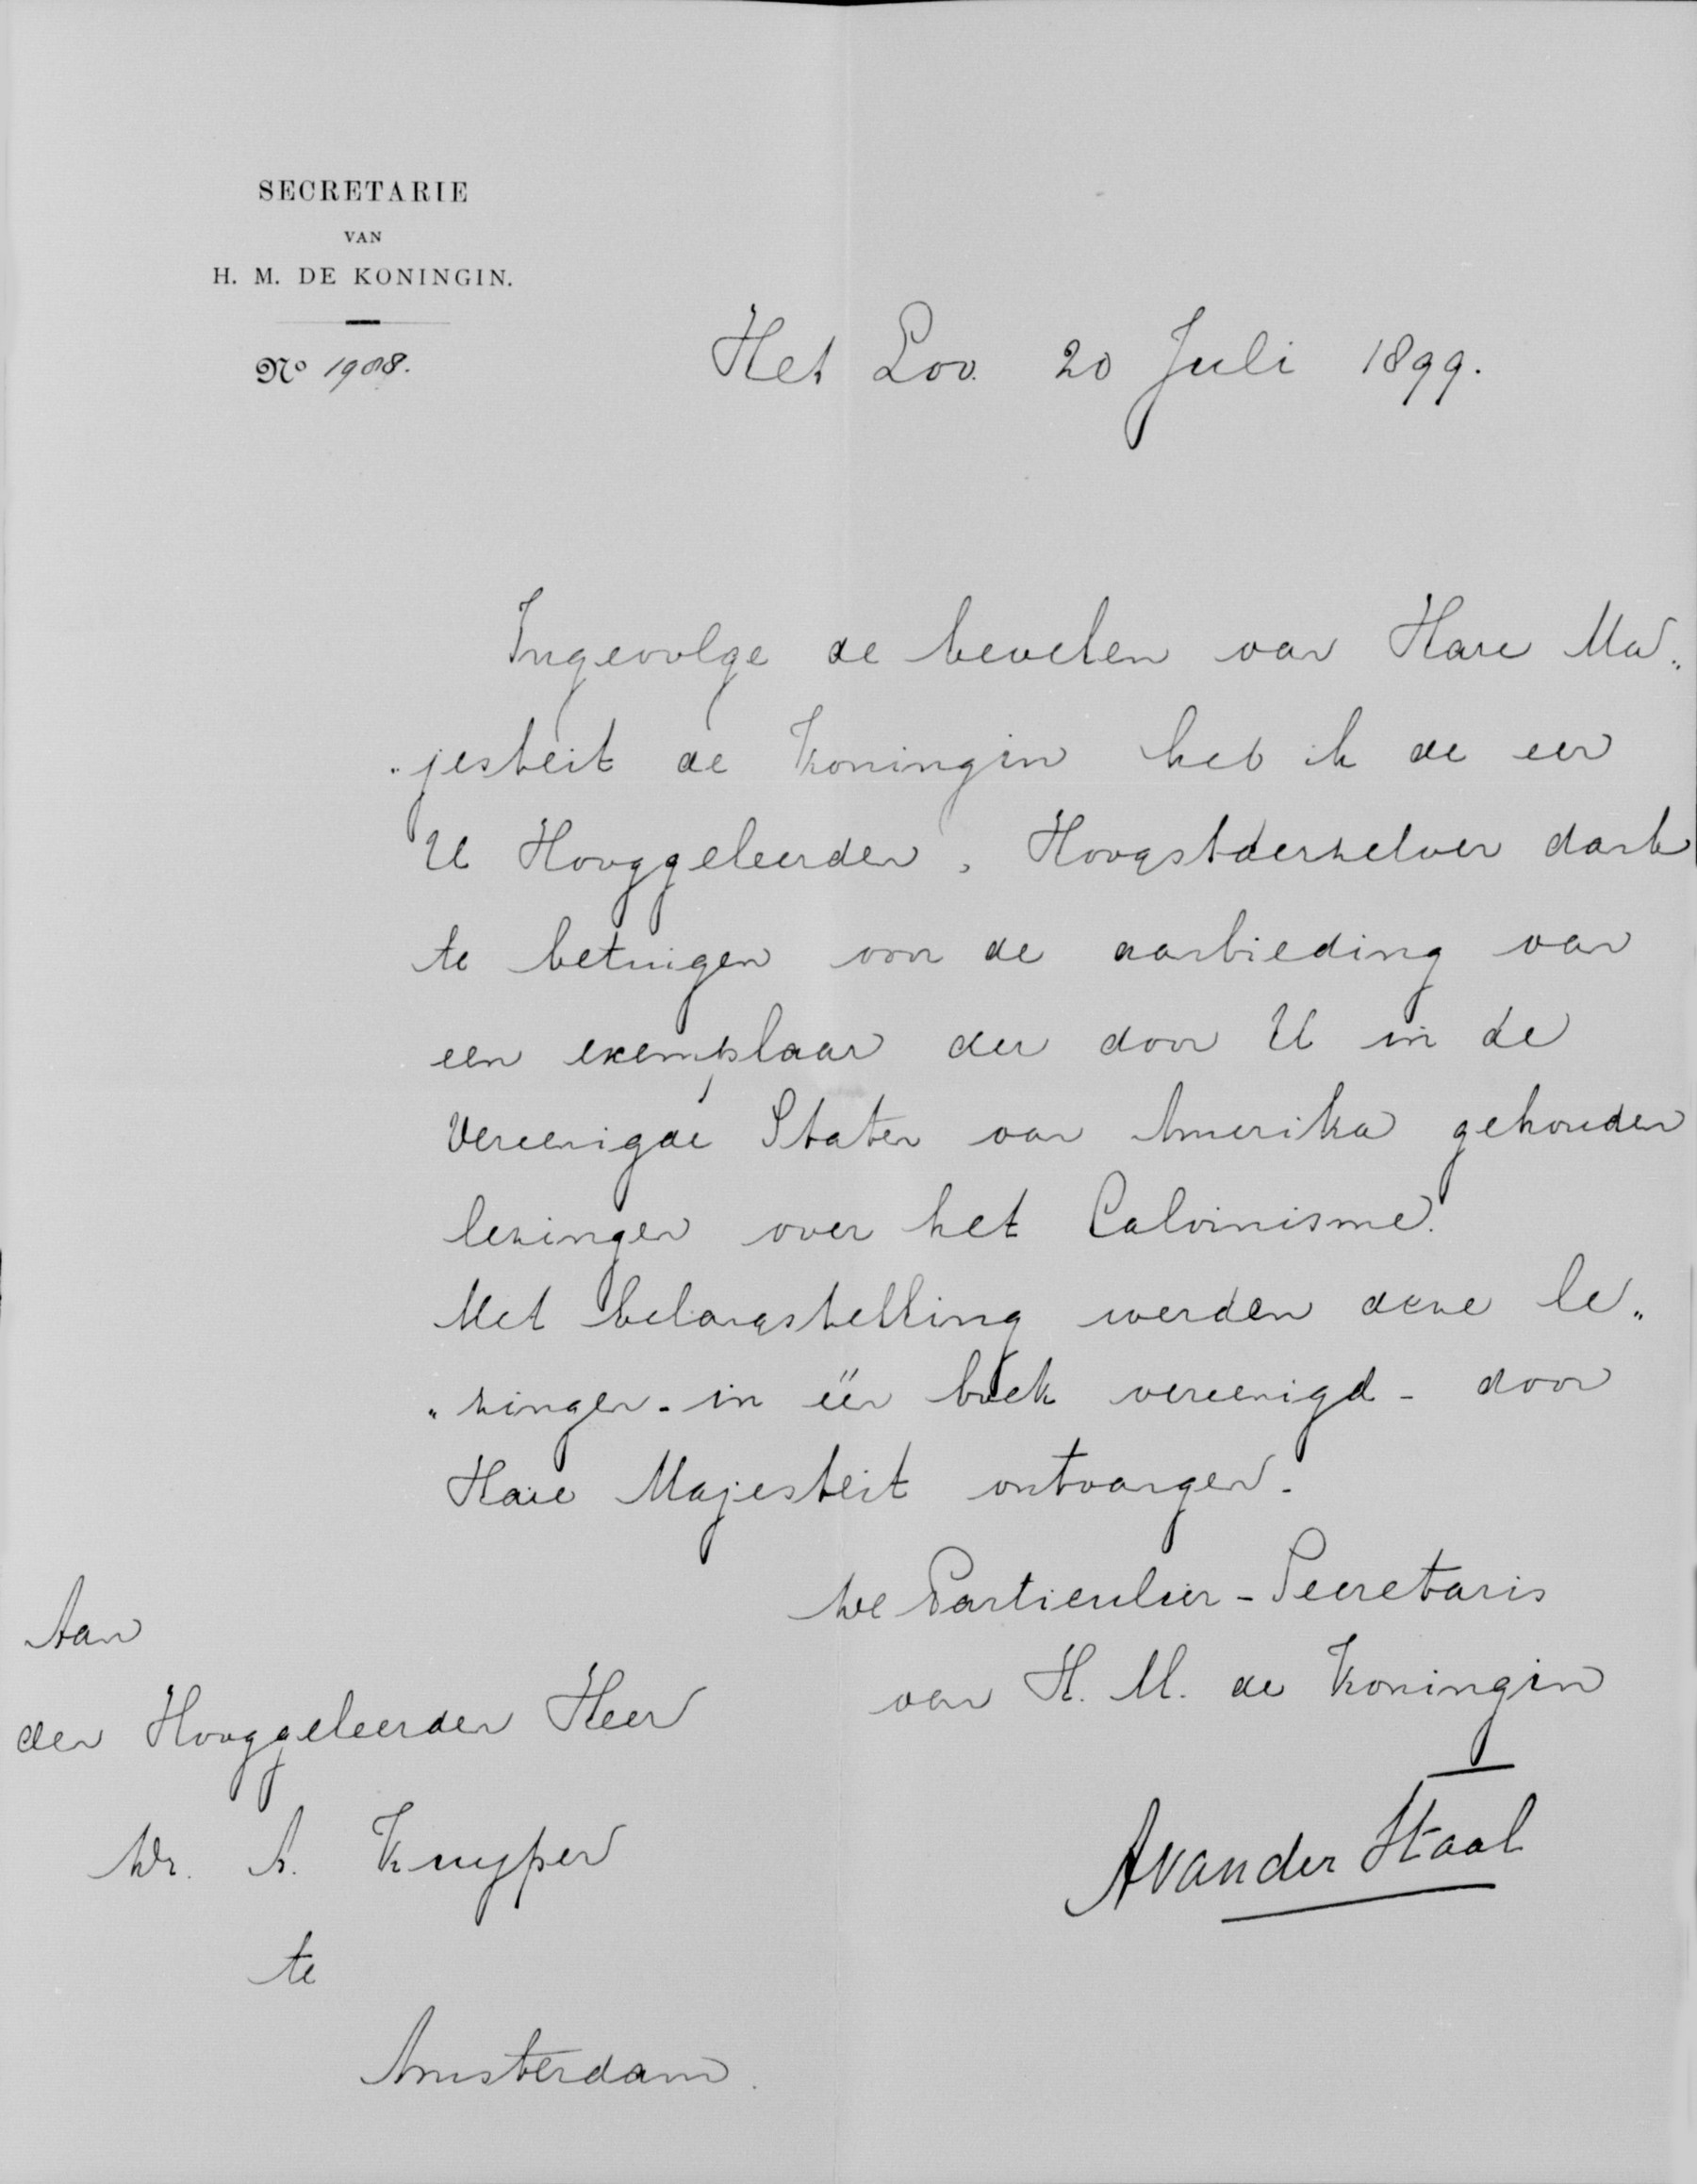 SECRETARIE
VAN
H. M. DE KONINGIN.
No 1908.
Het Loo 20 Juli 1899.
Ingevolge de bevelen van Hare Ma„
„jesteit de Koningin heb ik de eer
U Hooggeleerden, Hoogstderzelver dank
te betuigen voor de aanbieding van
een exemplaar der door U in de
Vereenigde Staten van Amerika gehouden
lezingen over het Calvinisme.
Met belangstelling werden deze le„
„zingen - in één boek vereenigd - door
Hare Majesteit ontvangen.
De Particulier-Secretaris
van H. M. de Koningin
AvanderStaal
Aan
den Hooggeleerden Heer
Dr. A. Kuyper
te
Amsterdam.